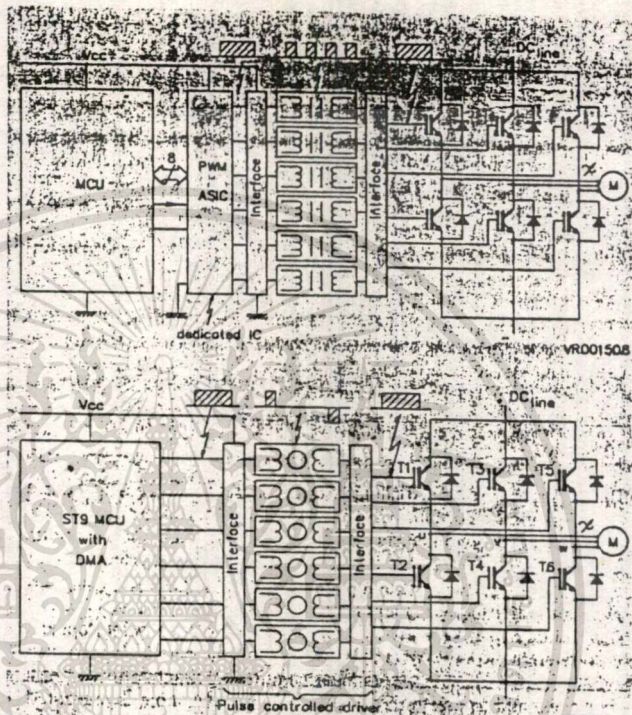 Vcc
DC line
MCU
8
PWM ASIC
Interface
Interface
M
dedicated IC
VR001508
Vcc
DC line
ST9 MCU with DMA
Interface
Interface
T1
T3
T5
u
v
w
M
T2
T4
T6
Pulse controlled driver